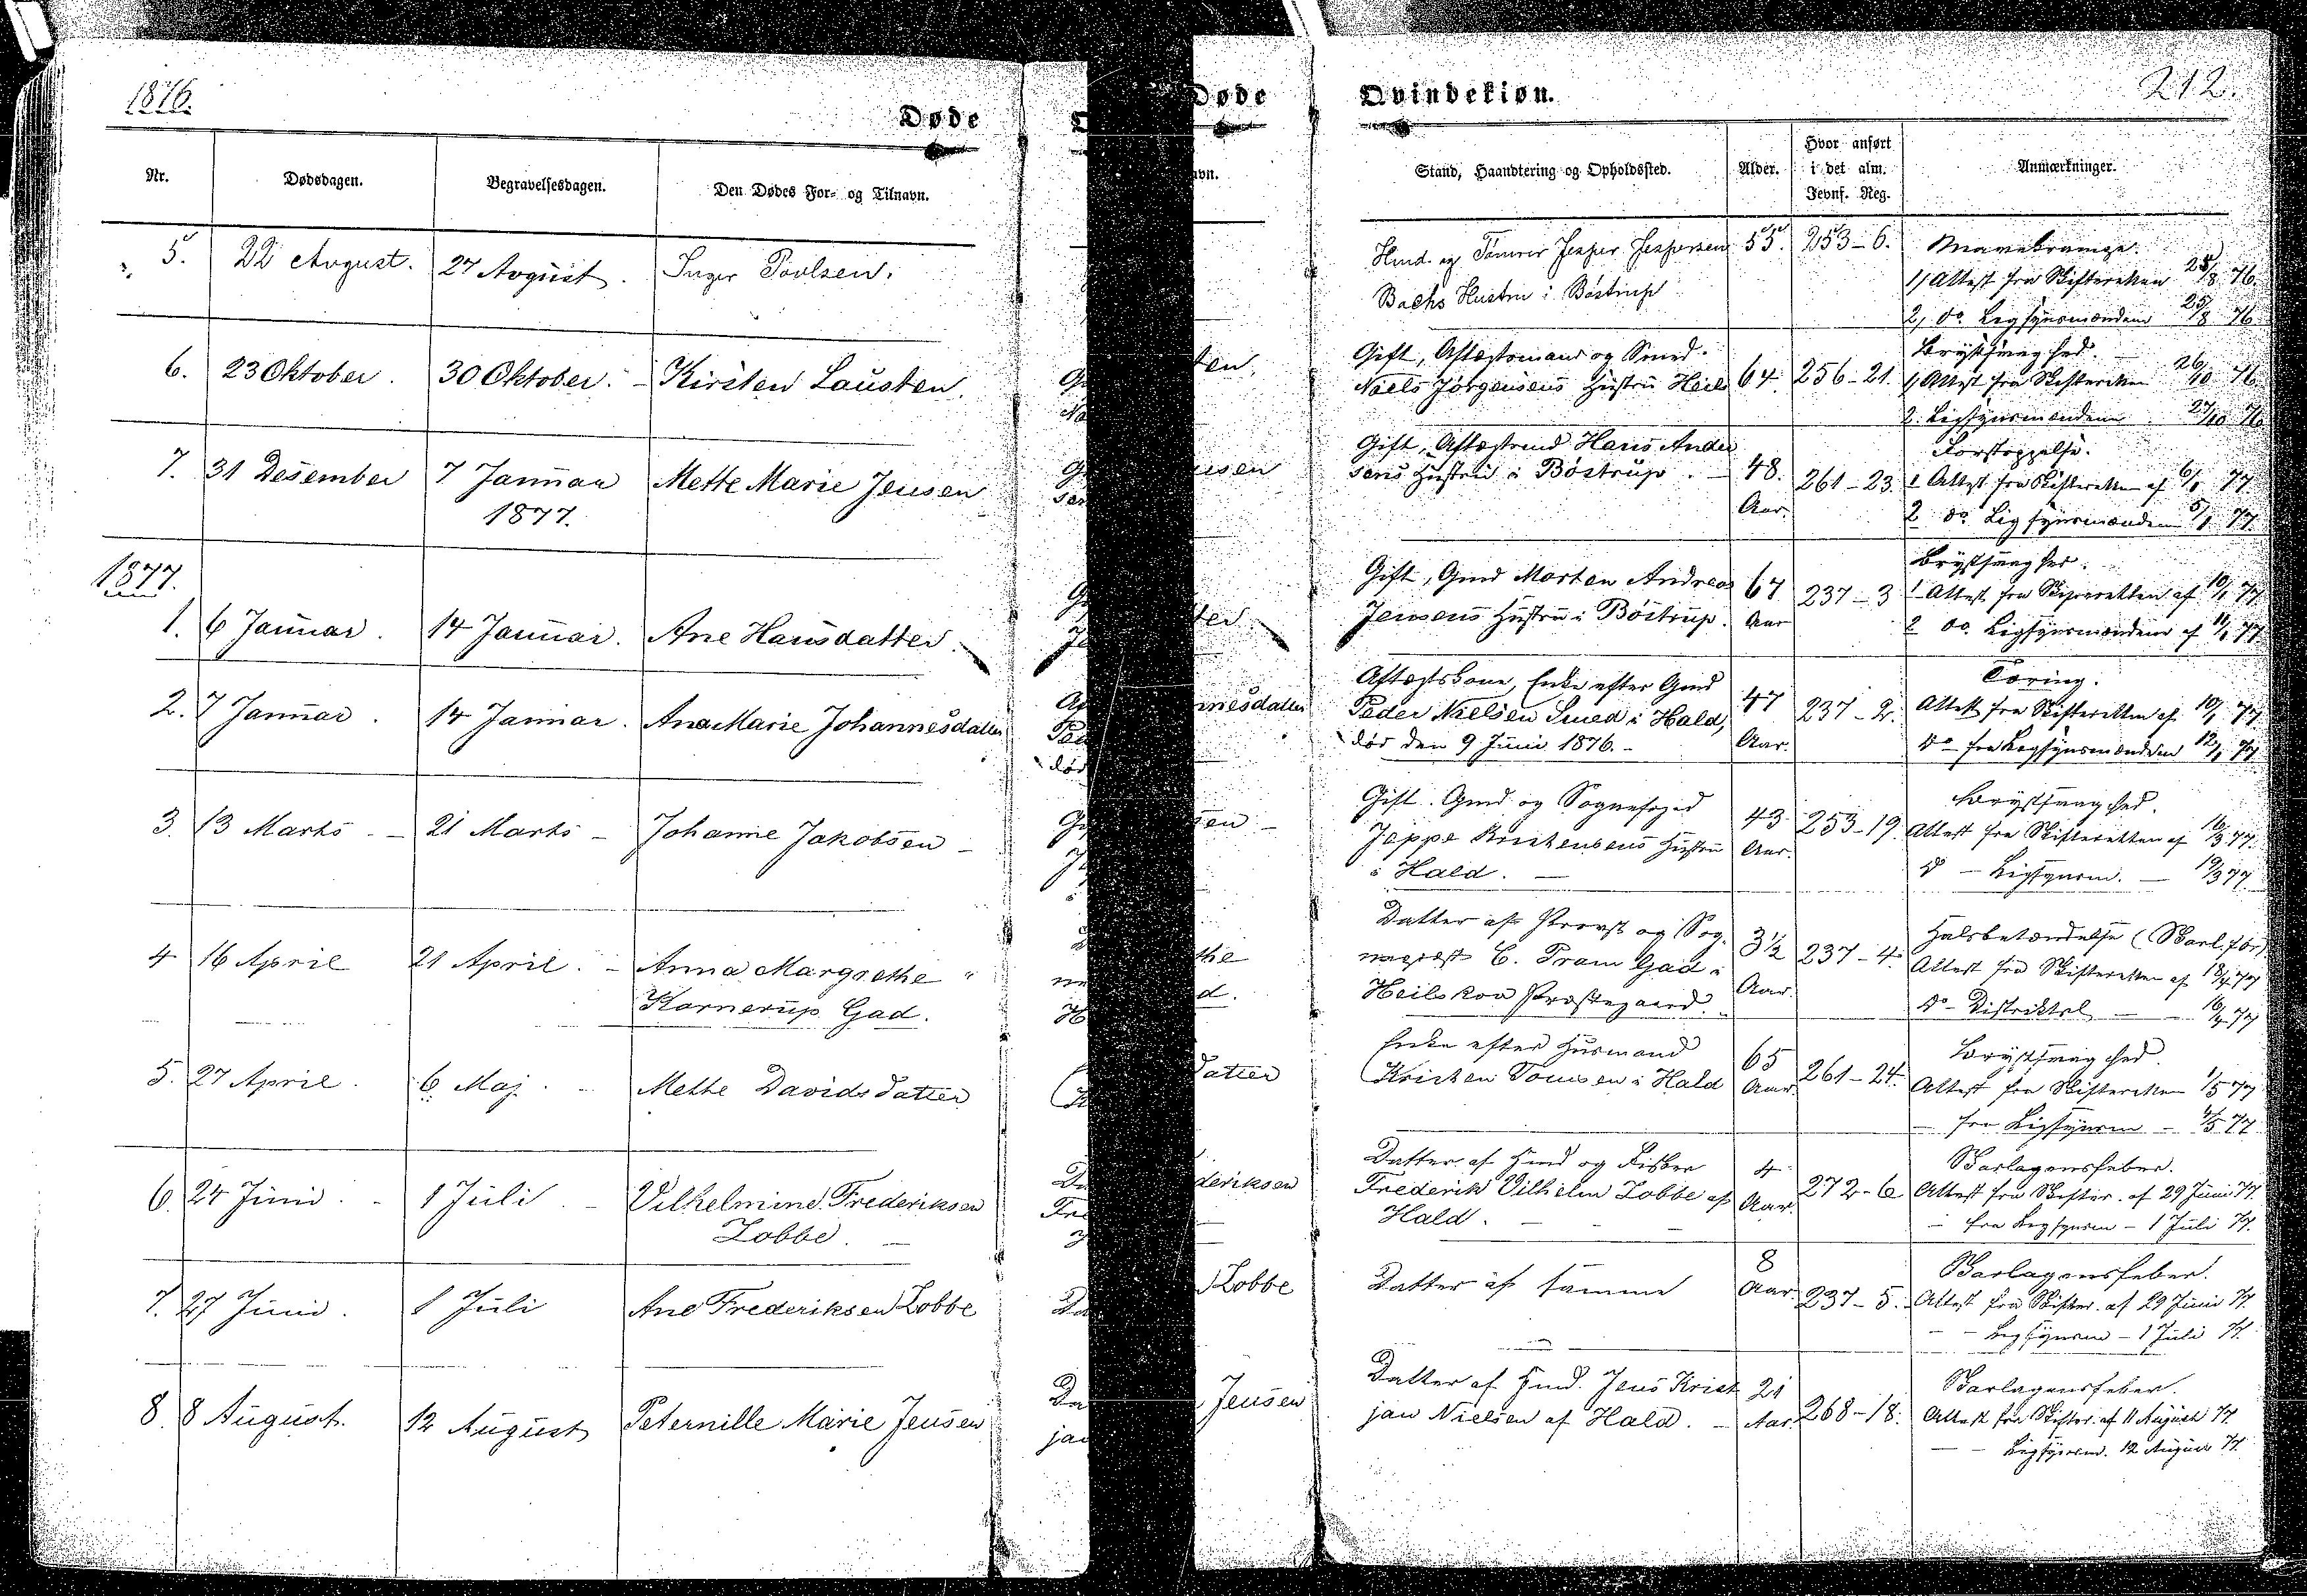 1876.
Døde
Nr.
Dødsdagen.
Begravelsesdagen.
Den Dødes For- og Tilnavn.
5. 22 August. 27 August. Inger Povlsen.
6. 23 Oktober. 30 Oktober. - Kirsten Lausten.
7. 31 Desember 7 Januar Mette Marie Jensen
1877.
1877.
1. 6 Januar. 14 Januar. Ane Hansdatter
2. 7 Januar. 14 Januar. Ana Marie Johannesdatter
3. 13 Marts - 21 Marts - Johanne Jakobsen -
4 16 April 21 April. - Anna Margrethe
Kornerup Gad.
5. 27 April. 6 Maj. Mette Davidsdatter
6. 24 Juni. - 1 Juli. - Vilhelmine Frederiksen
Lobbe. -
7. 27 Juni. 1 Juli Ane Frederiksen Lobbe
8. 8 August. 12 August Peternille Marie Jensen
Døde
avn.
ten.
nsen
ter
nnesdatter
sen -
the
d.
datter
deriksen
Lobbe
Jensen
Qvindekiøn.
212.
Stand, Haandtering og Opholdssted.
Alder.
Hvor anført
i det alm.
Jevnf. Reg.
Anmærkninger.
Hmd. og Tømrer Jesper Jespersen 55. 253-6. Mavekrampe.
Bachs Hustru i Böstrup
1) Attest fra Skifteretten 25/8 76.
2) do. Ligsynsmændene 25/8 76.
Gift, Aftægtsmand og Smed
Niels Jörgensens Hustru Heils 64. 256-21.
Brystsvaghed.
1) Attest fra Skifteretten 26/10 76.
2. Ligsynsmændene 27/10 76
Gift, Aftægtsmd Hans Ander
sens Hustru i Böstrup. - 48. Aar. 261-23
Forstoppelse.
1 Attest fra Skifteretten af 6/1 77.
2 do. Ligsynsmændene 5/1 77.
Gift, Gmd Morten Andreas 67 237-3
Jensens Hustru i Böstrup. Aar
Brystsvaghed.
1 Attest fra Skifteretten af 10/1 77
2 do. Ligsynsmændene af 11/1 77
Aftægtskone, Enke efter Gmd
Peder Nielsen Smed i Hald, 47 237-2.
død den 9 Juni 1876. - Aar.
Tæring.
Attest fra Skifteretten af 10/1 77
do - fra Ligsynsmændene 12/1 77
Gift. Gmd og Sognefoged 43 253-19.
Jeppe Kristensens Hustru Aar.
i Hald. -
Brystsvaghed.
Attest fra Skifteretten af 16/3 77.
do - Ligsynsm. - 19/3 77.
Datter af Provst og Sog-
nepræst C. Pram Gad i 3½ 237-4.
Heilskov Præstegaard. Aar.
Halsbetændelse (Skarl.
Attest fra Skifteretten af 18/4 77
do - Distriktsl. - 16/4 77
Enke efter Husmand 65
Kristen Tomsen i Hald Aar. 261-24.
Brystsvaghed.
Attest fra Skifteretten 1/5 77
- fra Ligsynsm - 4/5 77
Datter af Hmd og Fisker 4
Frederik Vilhelm Lobbe af Aar. 272-6
Hald. - - -
Skarlagensfeber.
Attest fra Skifter. af 29 Juni 77.
- fra Ligsynsm - 1 Juli 77.
Datter af samme 8 Aar. 237-5.
Skarlagensfeber.
Attest fra Skifter. af 29 Juni 77.
- - Ligsynsm - 1 Juli 77.
Datter af Hmd. Jens Krist 21
jan Nielsen af Hald. - Aar. 268-18.
Skarlagensfeber.
Attest fra Skifter. af 11 August 77.
- - Ligsynsm. 12 August 77.